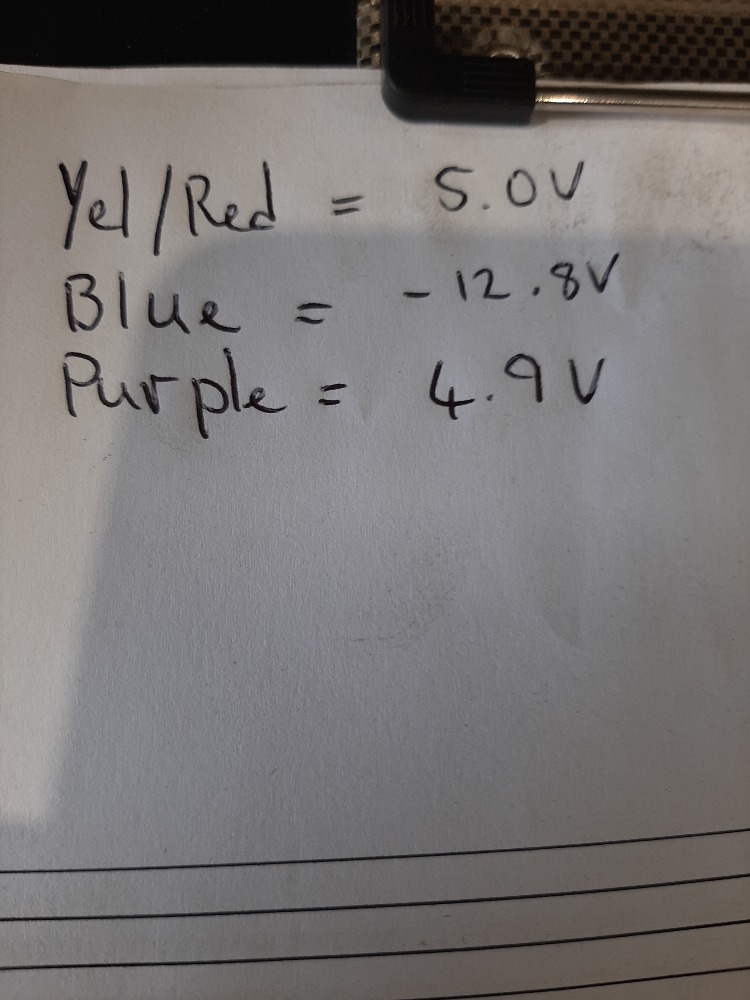 Yel/Red = 5.0V
Blue = -12.8V
Purple = 4.9V